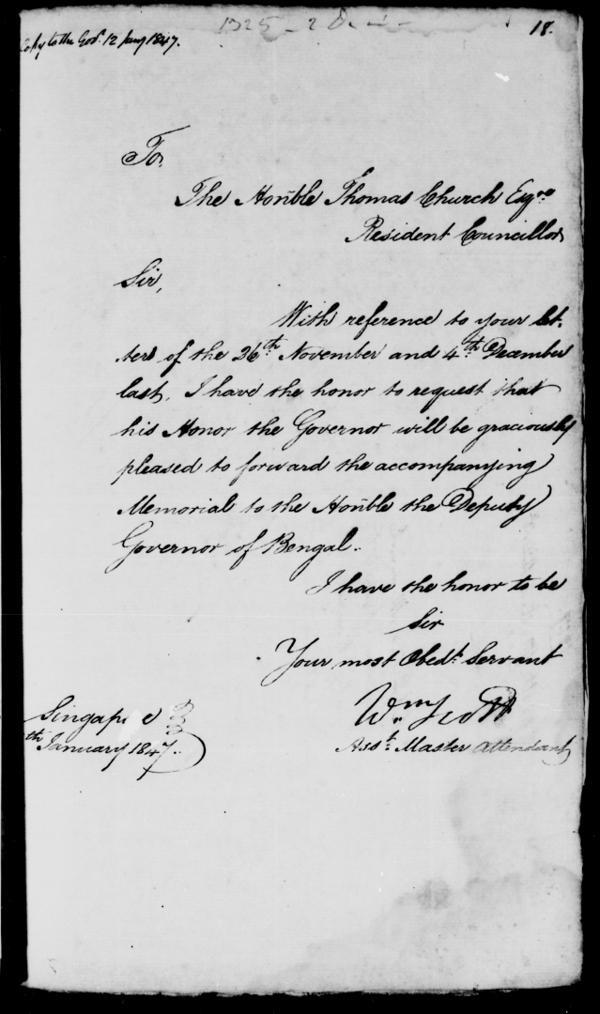 Copy to the Govr. 12 Jany 1847.
18.
To,
The Honble Thomas Church Esqre
Resident Councillor
Sir,
With reference to your let-
ters of the 26th November and 4th December
last, I have the honor to request that
his Honor the Governor will be graciously
pleased to forward the accompanying
Memorial to the Honble the Deputy
Governor of Bengal.
I have the honor to be
Sir
Your most Obedt. Servant
Wm Scott
Asst. Master Attendant
Singap e
th January 1847.